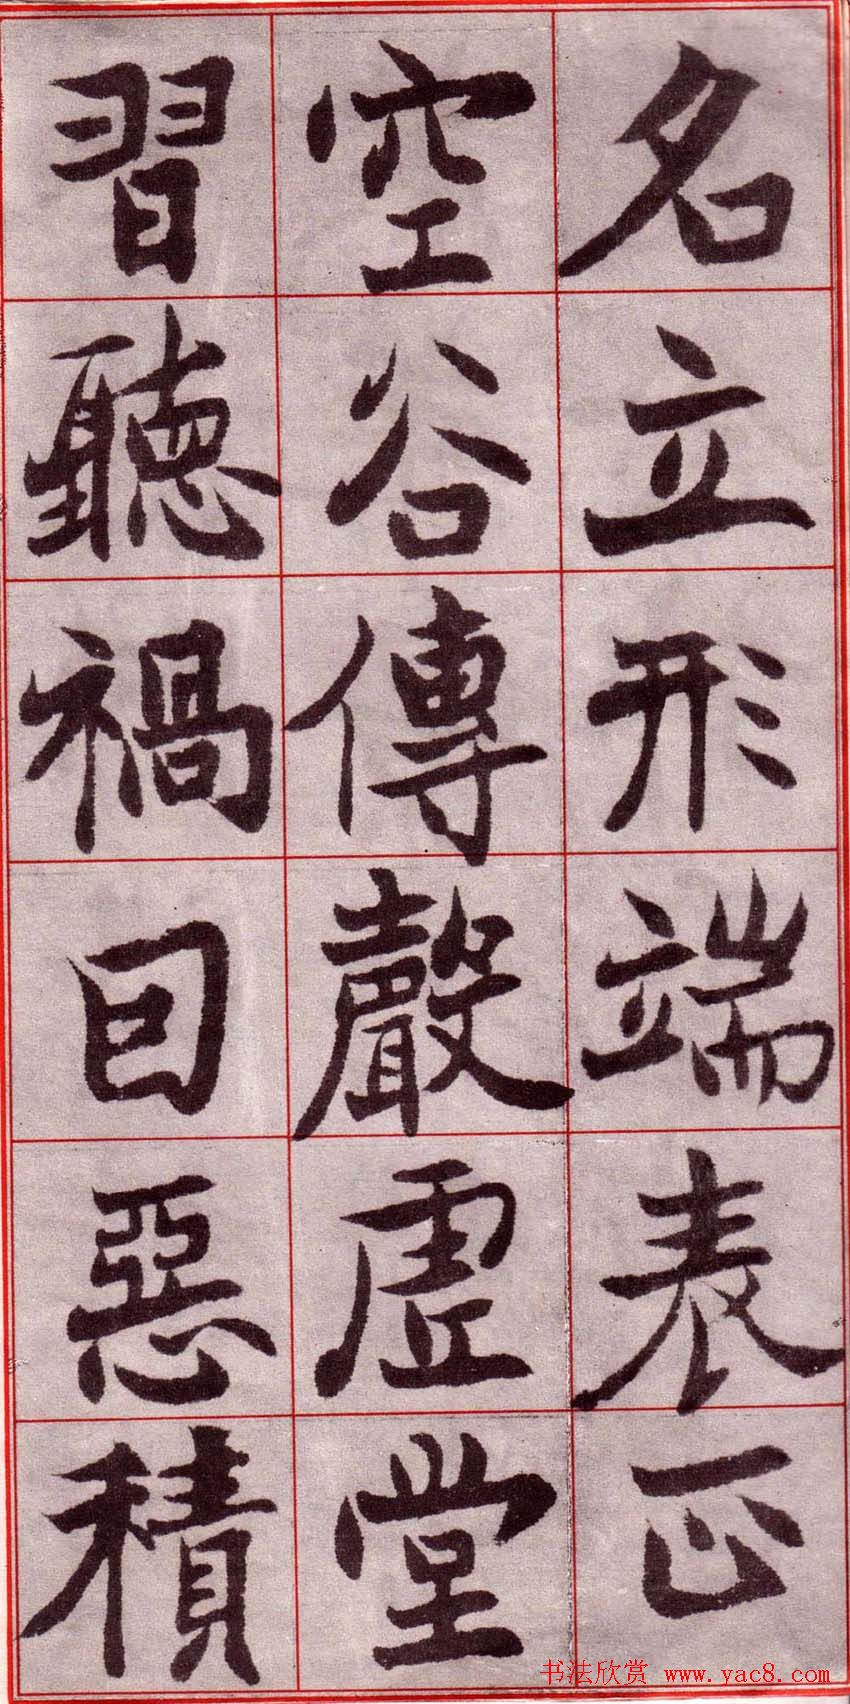 名立形端表正
空谷傳聲虛堂
習聽禍因惡積
书法欣赏 www.yac8.com